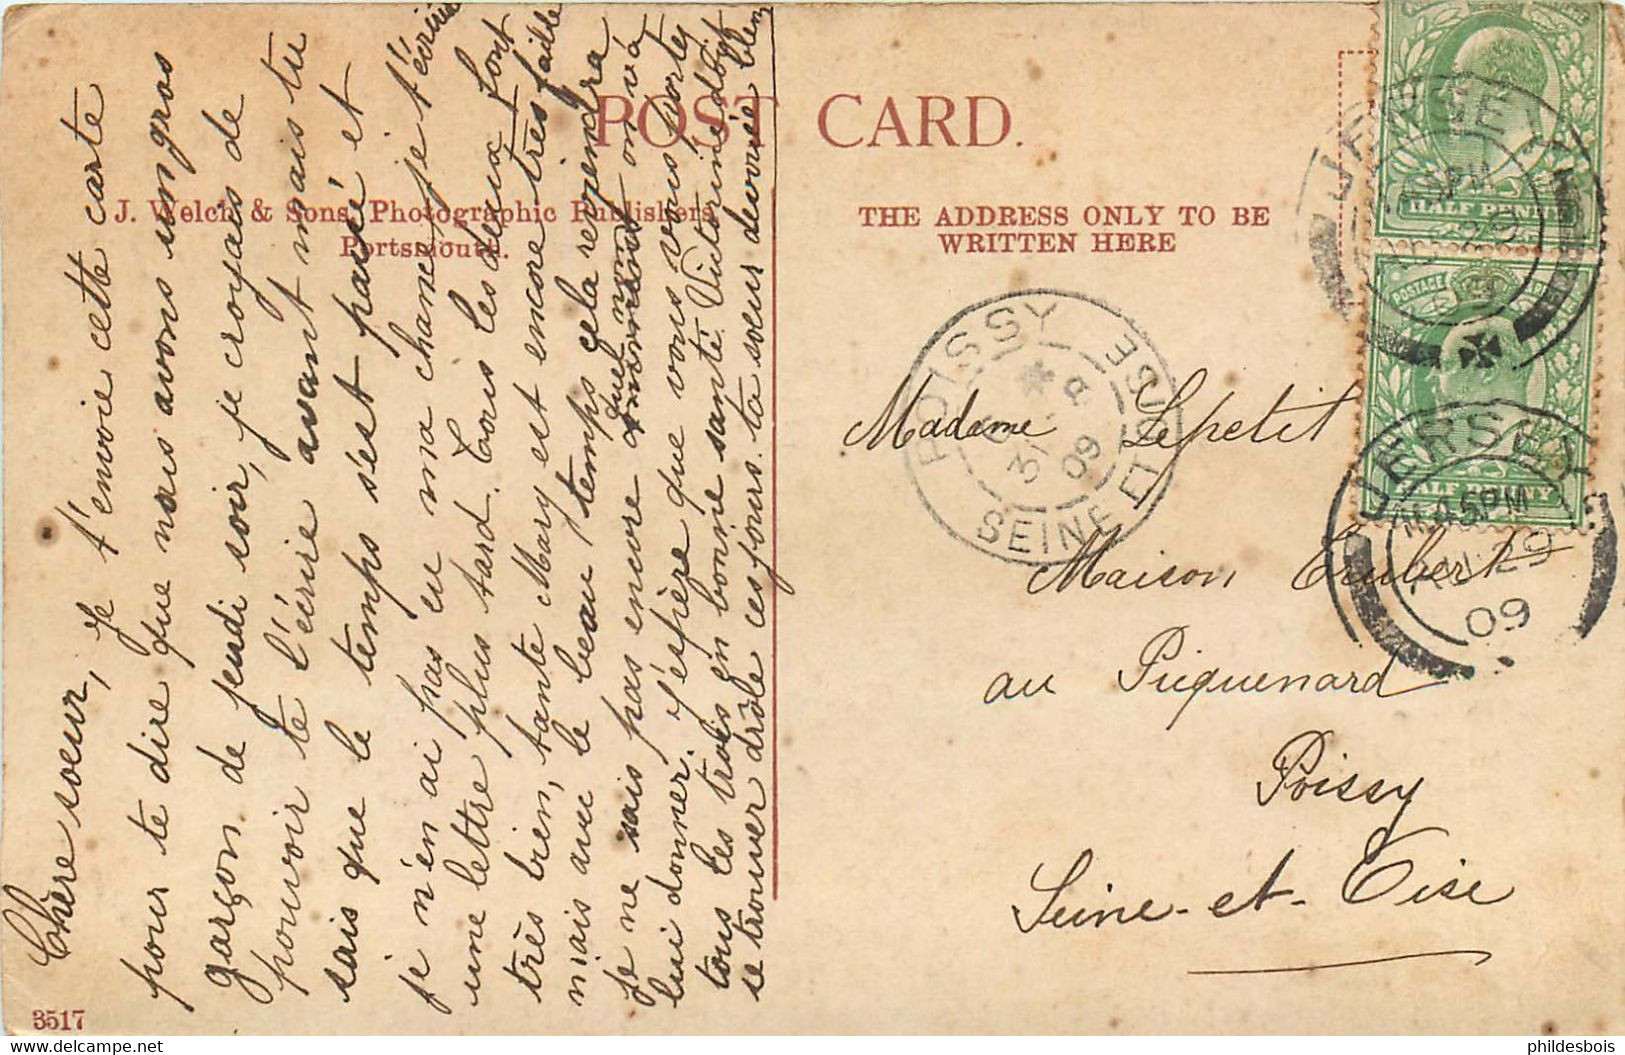 POST CARD.
J. Welch & Sons, Photographic Publishers,
Portsmouth.
THE ADDRESS ONLY TO BE
WRITTEN HERE
Chère soeur, Je t'envoie cette carte
pour te dire que nous avons un gros
garçon de jeudi soir, je croyais de
pouvoir te l'écrire avant mais tu
sais que le temps s'est passé et
je n'en ai pas eu ma chance, je t'écrirai
une lettre plus tard. Tous les deux font
très bien, tante Mary est encore très faible
mais avec le beau temps cela reviendra
je ne sais pas encore quel nom on va
lui donner. J'espère que vous vous portez
tous les trois en bonne santé. Victorine doit
se trouver drôle ces jours. ta soeur dévouée
Madame Lepetit
Maison Trubert
au Piquenard
Poissy
Seine-et-Oise
POISSY
SEINE ET OISE
31 8
09
JERSEY
JERSEY
11.45PM
AU 29
09
POSTAGE
HALF PENNY
HALF PENNY
3517
www.delcampe.net
phildesbois